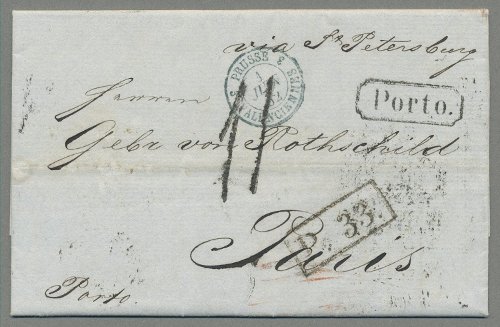 via St Petersburg
PRUSSE
VALENCIENNES
Porto.
Herren
11
Gebr von Rothschild
P. 33.
Paris
Porto.